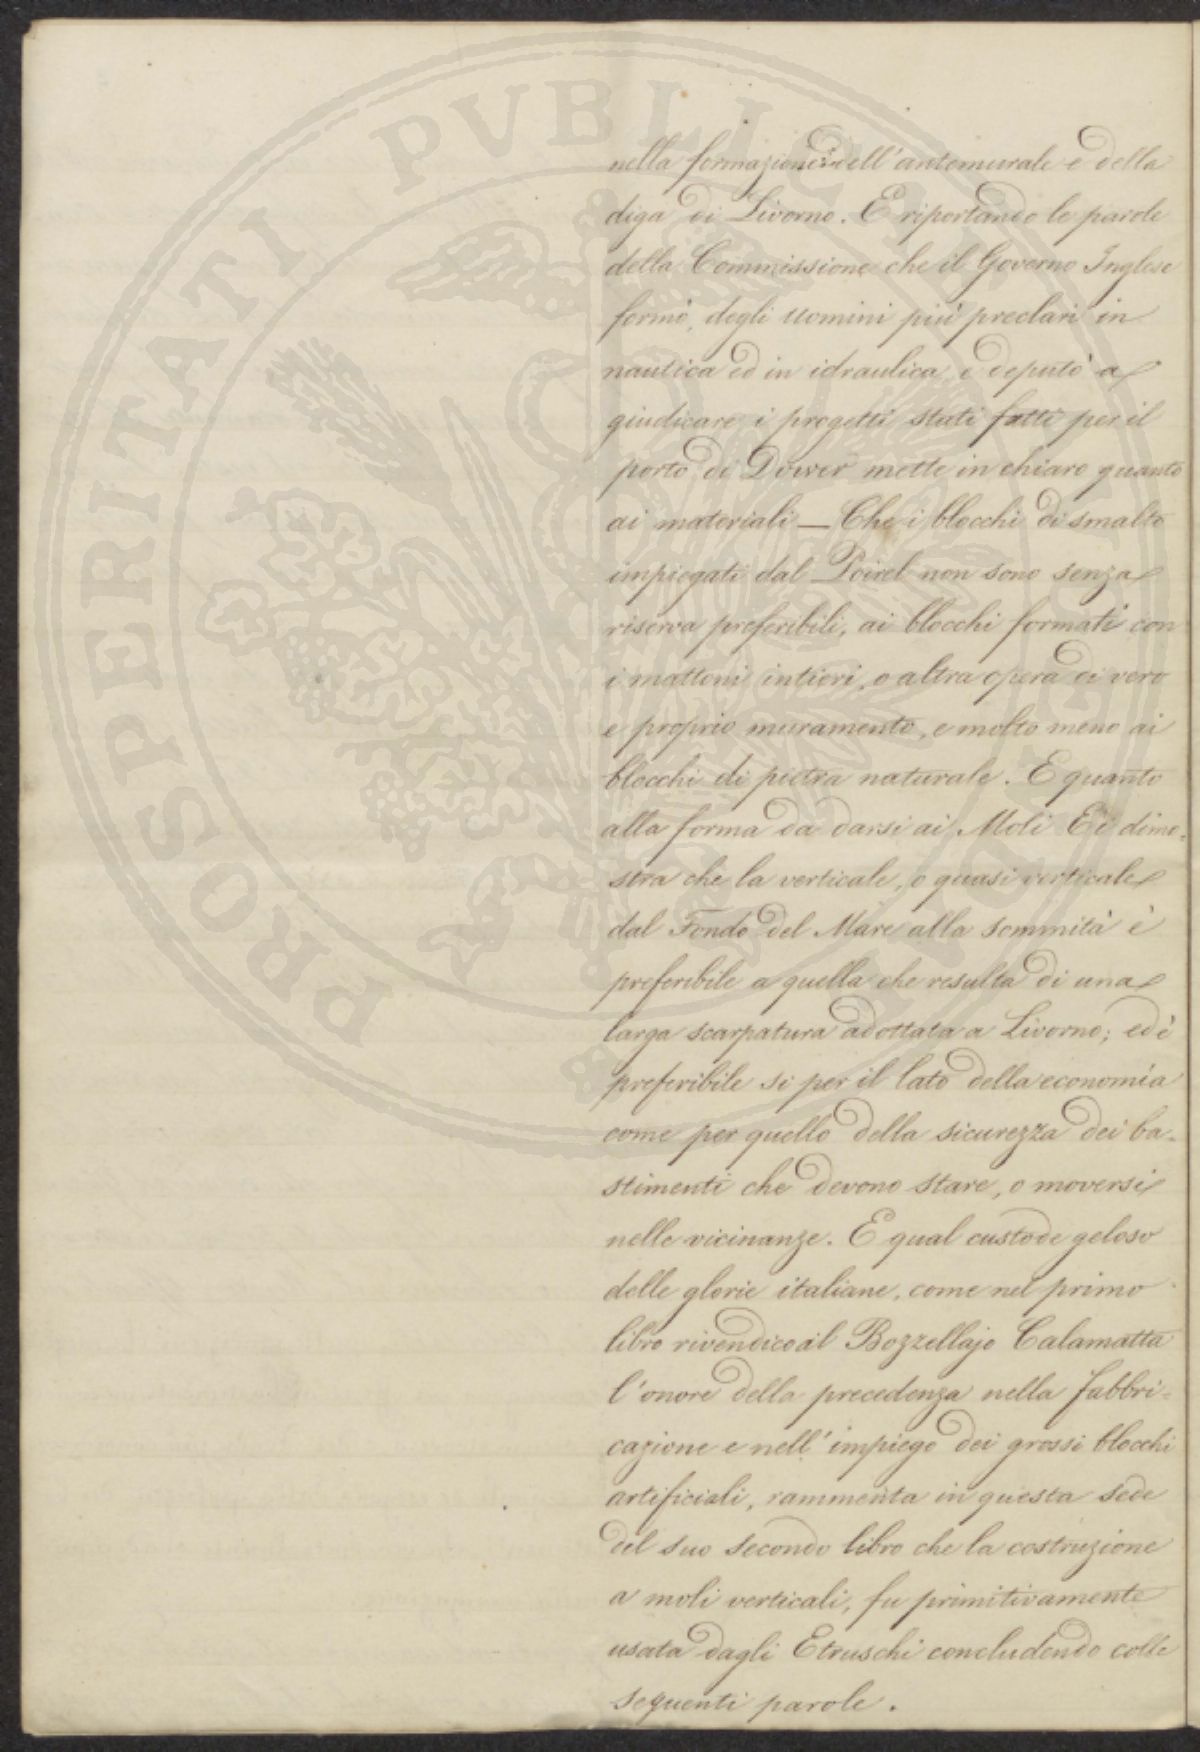 nella formazione dell'antemurale e della
diga di Livorno. E riportando le parole
della Commissione che il Governo Inglese
formò, degli uomini più preclari in
nautica ed in idraulica, e deputò a
giudicare i progetti stati fatti per il
porto di Dower mette in chiaro quanto
ai materiali — Che i blocchi di smalto
impiegati dal Poirel non sono senza
riserva preferibili, ai blocchi formati con
i mattoni intieri, o altra opera di vero
e proprio muramento, e molto meno ai
blocchi di pietra naturale. E quanto
alla forma da darsi ai Moli Ei dimo=
stra che la verticale, o quasi verticale
dal Fondo del Mare alla sommità è
preferibile a quella che resulta di una
larga scarpatura adottata a Livorno; ed è
preferibile si per il lato della economia
come per quello della sicurezza dei ba-
stimenti che devono stare, o moversi
nelle vicinanze. E qual custode geloso
delle glorie italiane, come nel primo
libro rivendico al Bozzellajo Calamatta
l'onore della precedenza nella fabbri=
cazione e nell'impiego dei grossi blocchi
artificiali, rammenta in questa sede
del suo secondo libro che la costruzione
a moli verticali, fu primitivamente
usata dagli Etruschi concludendo colle
seguenti parole.
PROSPERITATI PVBLICAE